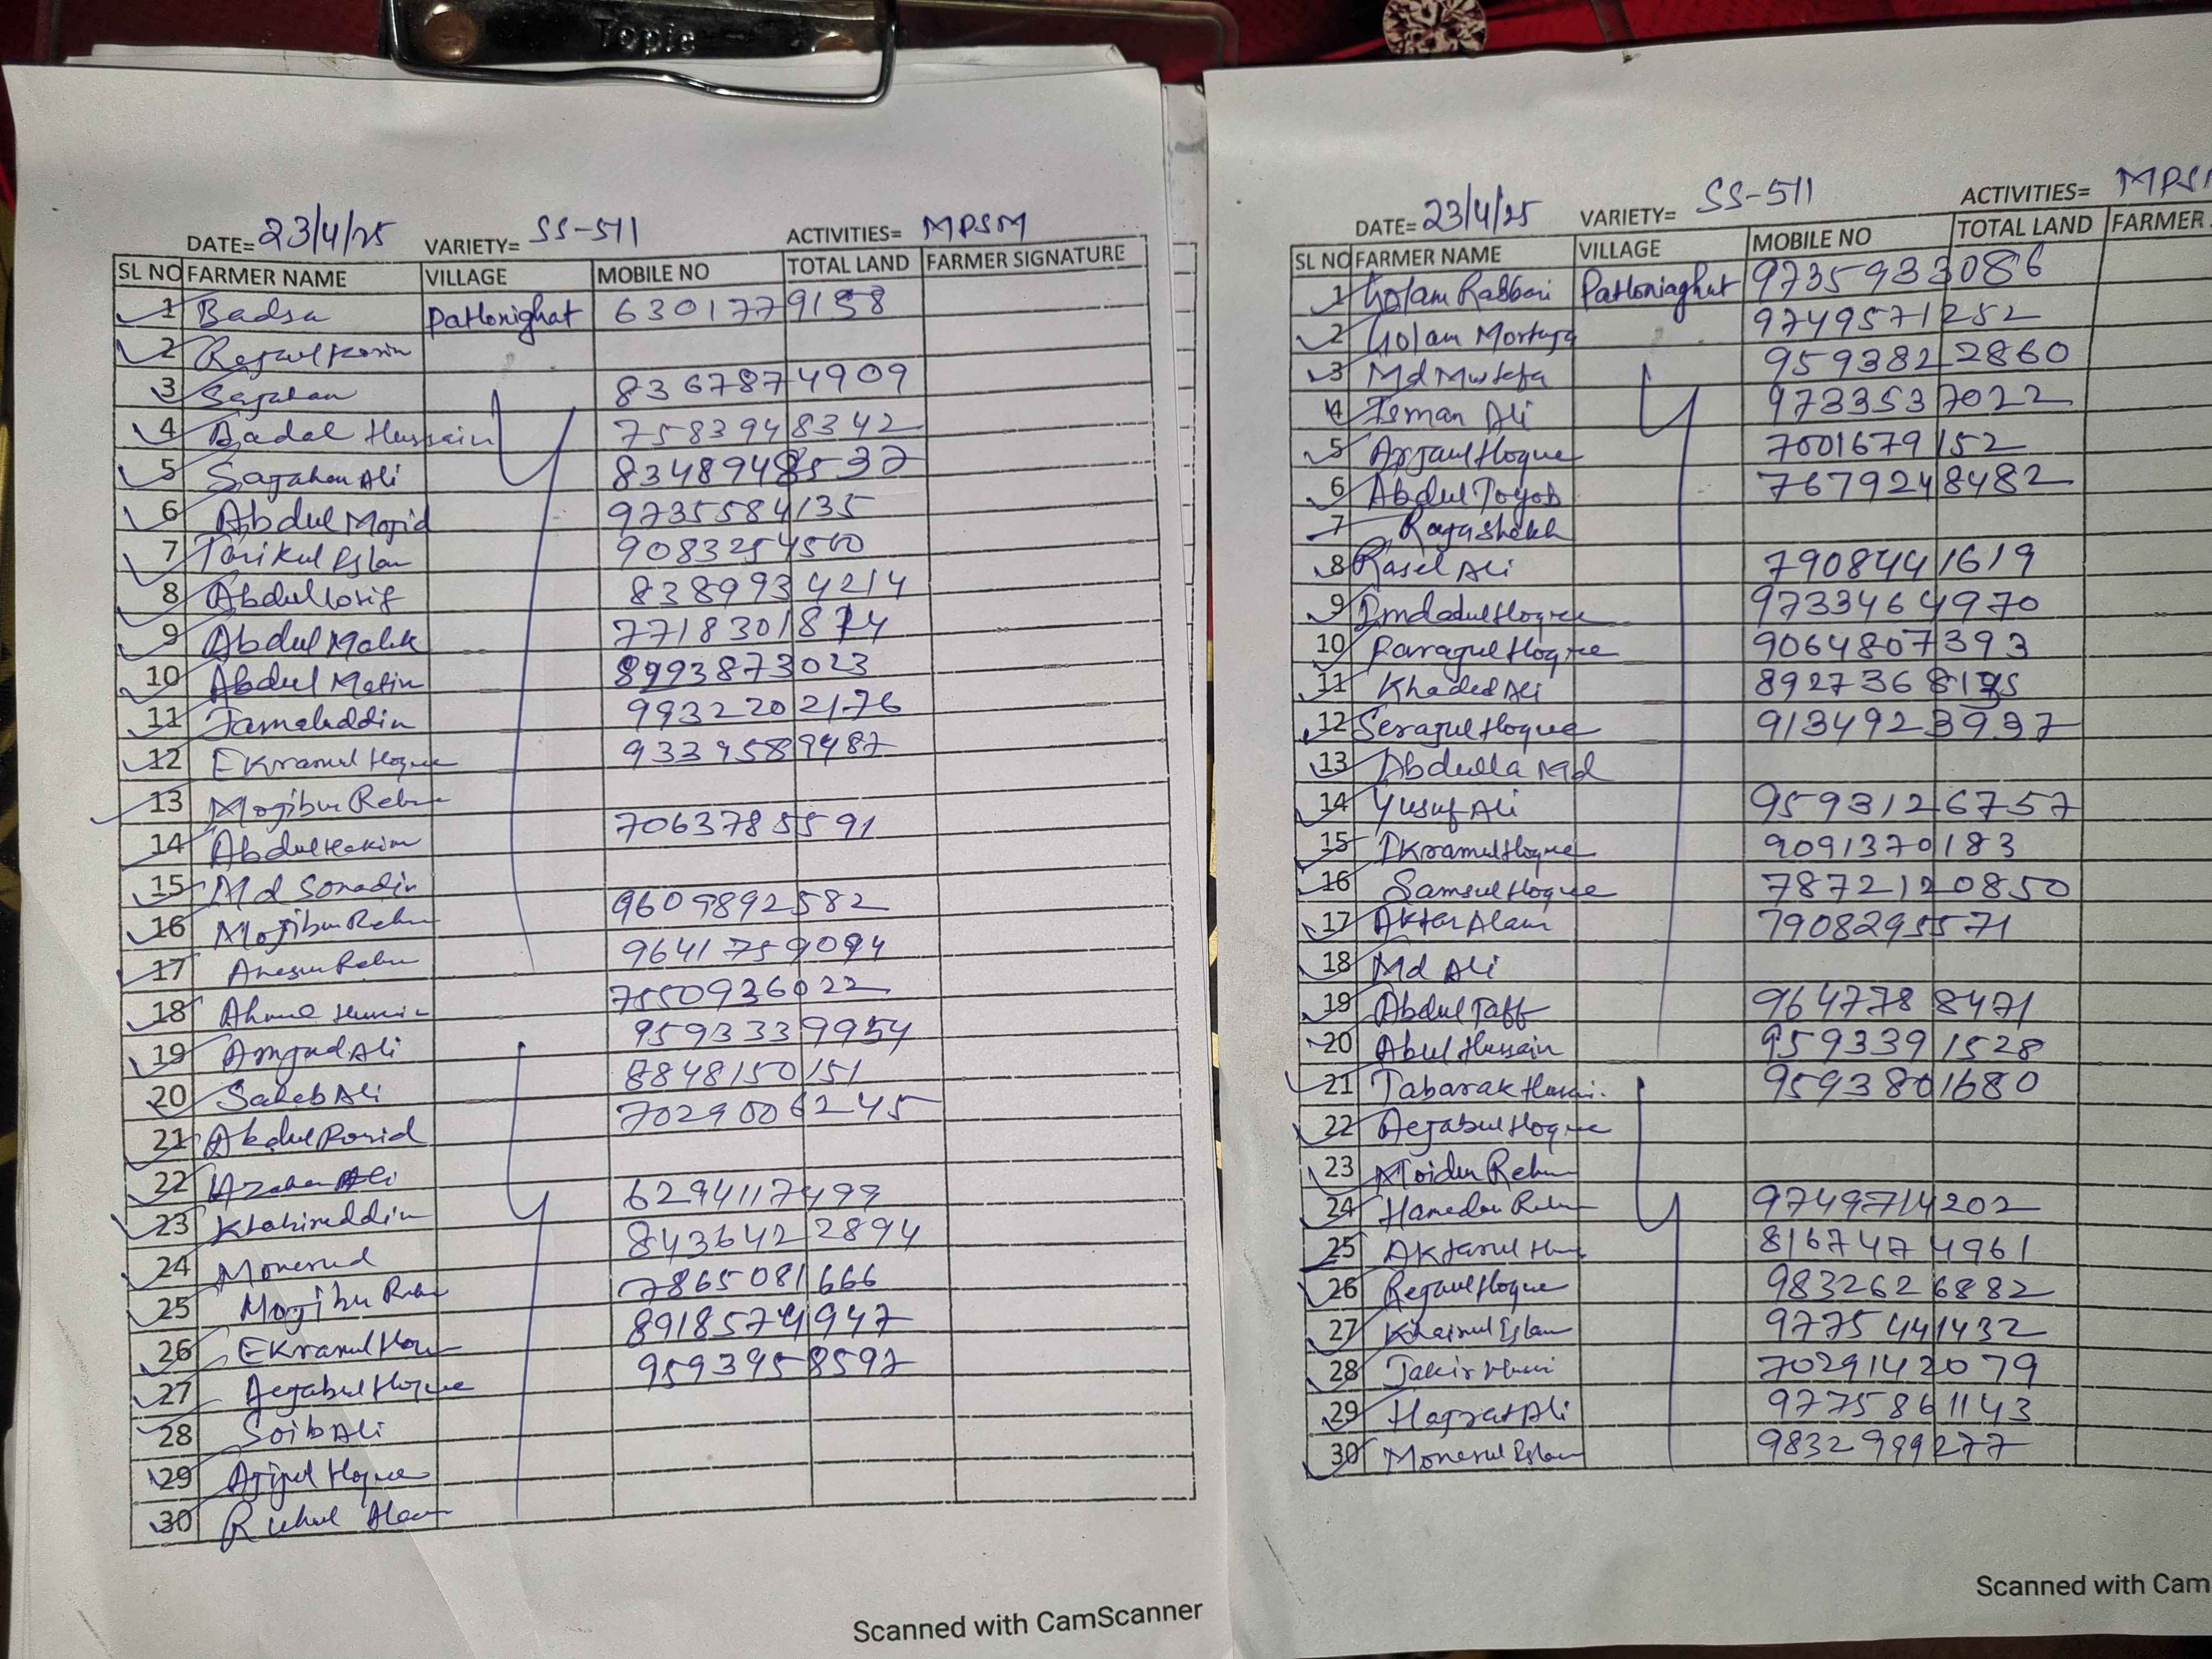 Topic
DATE= 23/4/25 VARIETY= SS-511 ACTIVITIES= MPSM
SL NO FARMER NAME VILLAGE MOBILE NO TOTAL LAND FARMER SIGNATURE
1 Badsa Patlonighat 6301779158
2 Rejaul Karim
3 Sajahan 8367874909
4 Badal Hussain 7583948342
5 Sajahan Ali 8348948537
6 Abdul Mojid 9735584135
7 Tarikul Islam 9083254500
8 Abdul 8389934214
9 Abdul Malik 7718301874
10 Abdul Matin 8993873023
11 Jamaluddin 9932202176
12 Ekramul Hoque 9339589487
13 Mojibur Rehm
14 Abdul Hakim 7063785591
15 Md
16 Mojibur Rehm 9609892582
17 9641759094
18 7550936022
19 Amjad Ali 9593339954
20 Saheb Ali 8848150151
21 Abdul Rosid 7029006245
22 Azahar Ali
23 6294117499
24 8436422894
25 Mojibu 7865081666
26 Ekramul 8918574947
27 Aejabul Hoque 9593958597
28 Soib Ali
29 Ajijul Hoque
30 Ruhul Alam
Scanned with CamScanner
DATE= 23/4/25 VARIETY= SS-511 ACTIVITIES= MPSM
SL NO FARMER NAME VILLAGE MOBILE NO TOTAL LAND FARMER
1 Golam Rabbani Patloniaghat 9735933086
2 Golam Mortuja 9749571252
3 Md Mustafa 9593822860
4 Isman Ali 9733537022
5 Azjaul Hoque 7001679152
6 Abdul Toyob 7679248482
7 Raja Shekh
8 Rasel Ali 7908441619
9 Imdadul Hoque 9733464970
10 Parajul Hoque 9064807393
11 Khaded Ali
12 Serajul Hoque 9134923937
13 Abdulla Md
14 Yusuf Ali 9593126757
15 Ikramul Hoque 9091370183
16 Samsul Hoque 7872120850
17 Aktar Alam 7908295571
18 Md Ali
19 Abdul Taff 9647788471
20 Abul Hussain 9593391528
21 Tabarak 9593801680
22 Aejabul Hoque
23 Moidur Rehm
24 9749714202
25 Aktarul 8167474961
26 Rejaul Hoque 9832626882
27 Khairul Islam 9775441432
28 Jakir 7029142079
29 Hajrat Ali 9775861143
30 Monerul Islam 9832999277
Scanned with Cam